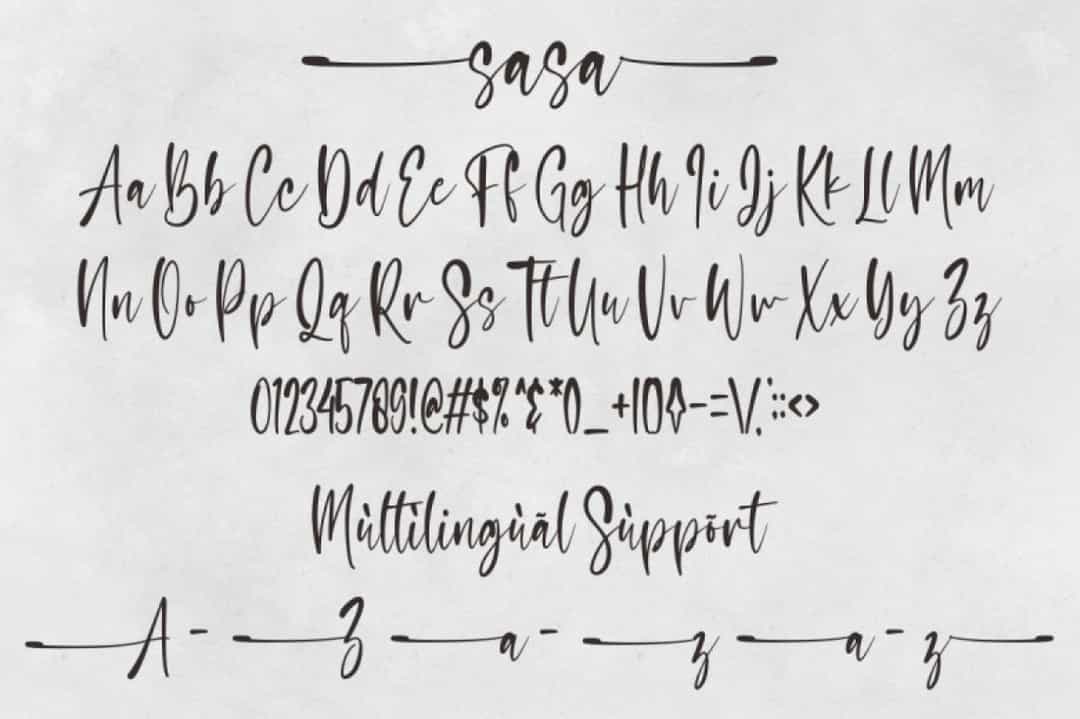 sasa
Aa Bb Cc Dd Ee Ff Gg Hh Ii Jj Kk Ll Mm
Nn Oo Pp Qq Rr Ss Tt Uu Vv Ww Xx Yy Zz
012345789!@#$%^&*()_+|[]{}-=\/,.:;<>
Mùltìlingùãl Sùppõrt
A - Z a - z a - z